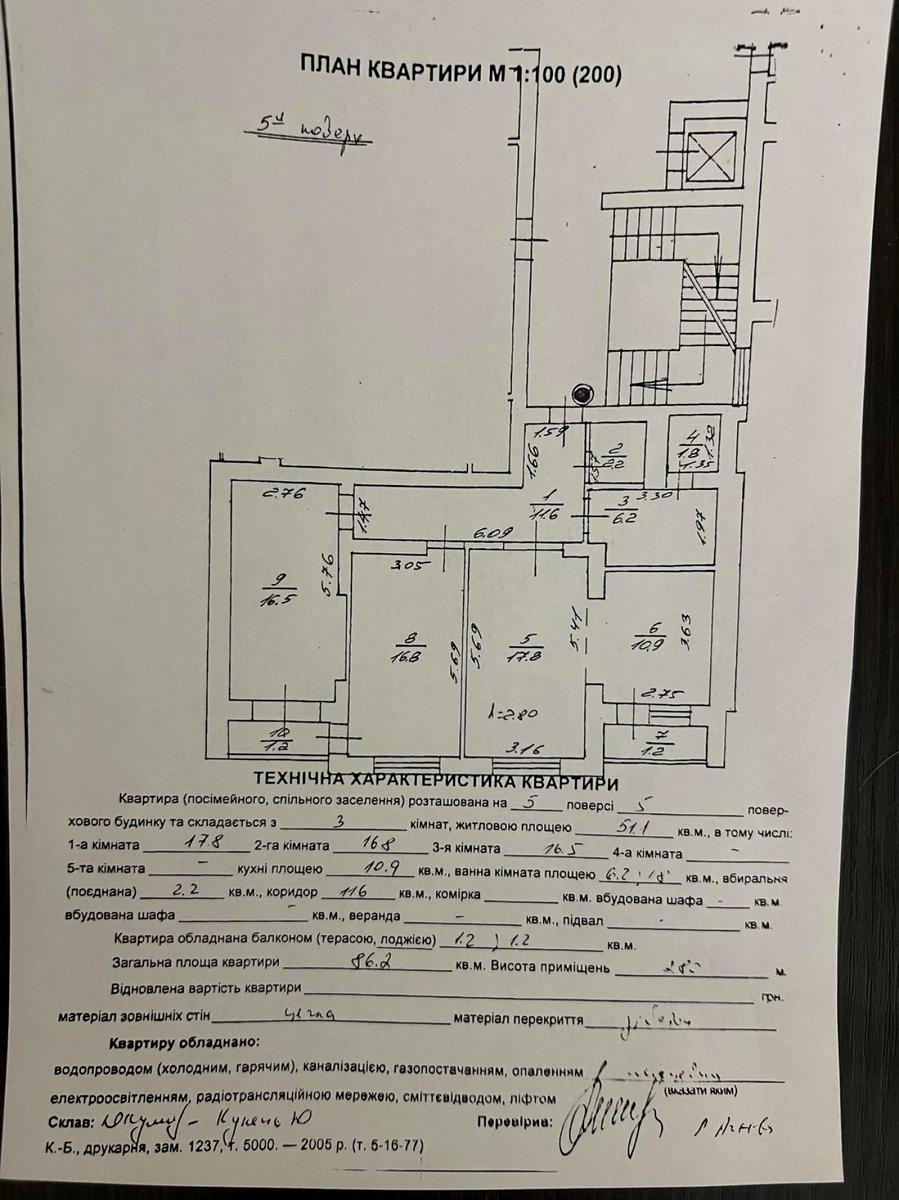 ПЛАН КВАРТИРИ М 1:100 (200)
5й поверх
1.59
1.66
2
2.2
1.57
4
1.8
1.32
1.35
2.76
1.47
1
11.6
3
6.2
3.30
1.97
6.09
5.76
9
16.5
3.05
8
16.8
5.69
5.69
5
17.8
5.41
6
10.9
3.63
h=2.80
2.75
10
1.2
3.16
7
1.2
ТЕХНІЧНА ХАРАКТЕРИСТИКА КВАРТИРИ
Квартира (посімейного, спільного заселення) розташована на 5 поверсі 5 повер-
хового будинку та складається з 3 кімнат, житловою площею 51.1 кв.м., в тому числі:
1-а кімната 17.8 2-га кімната 16.8 3-я кімната 16.5 4-а кімната –
5-та кімната – кухні площею 10.9 кв.м., ванна кімната площею 6.2; 1.8 кв.м., вбиральня
(поєднана) 2.2 кв.м., коридор 11.6 кв.м., комірка кв.м. вбудована шафа - кв.м.
вбудована шафа – кв.м., веранда – кв.м., підвал - кв.м.
Квартира обладнана балконом (терасою, лоджією) 1.2; 1.2 кв.м.
Загальна площа квартири 86.2 кв.м. Висота приміщень 2.80 м.
Відновлена вартість квартири грн.
матеріал зовнішніх стін цегла матеріал перекриття
Квартиру обладнано:
водопроводом (холодним, гарячим), каналізацією, газопостачанням, опаленням
(вказати яким)
електроосвітленням, радіотрансляційною мережею, сміттєвідводом, ліфтом
Склав: Перевірив:
К.-Б., друкарня, зам. 1237, т. 5000. — 2005 р. (т. 5-16-77)